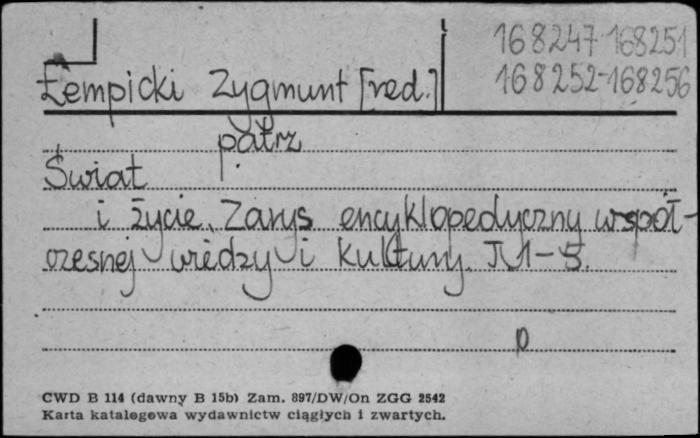 168247-168251
168252-168256
Łempicki Zygmunt [red.]
patrz
Świat
i życie. Zarys encyklopedyczny współ-
czesnej wiedzy i kultury. T. 1-5.
p
CWD B 114 (dawny B 15b) Zam. 897/DW/On ZGG 2542
Karta katalogowa wydawnictw ciągłych i zwartych.